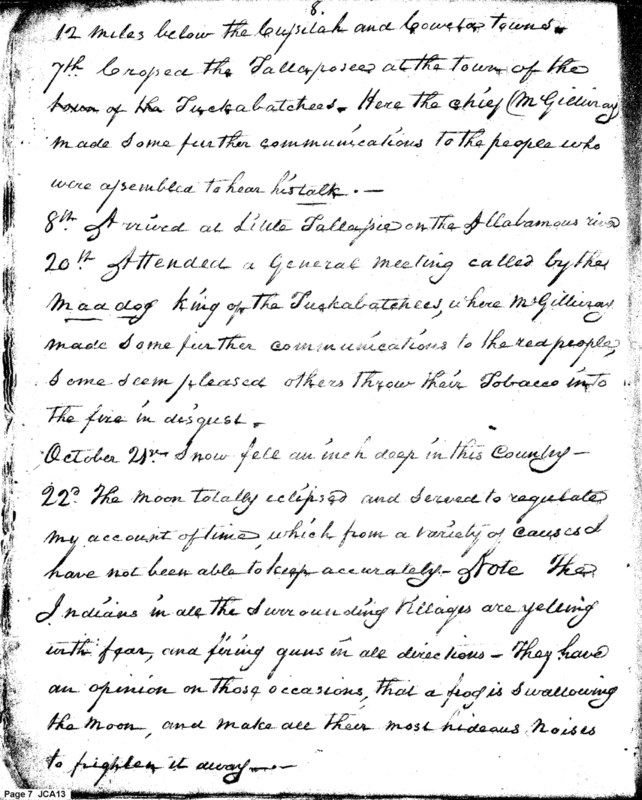 8.
12 miles below the Cusitah and Coweta towns.
7th Crossed the Tallaposee at the town of the
town of the Tuckabatchees. Here the chief (McGillivray)
made some further communications to the people who
were assembled to hear his talk. —
8th Arrived at Little Tallassie on the Allabamous river
20th Attended a General meeting called by the
Maddog King of the Tuckabatchees, where McGillivray
made some further communications to the red people,
some seem pleased others throw their Tobacco into
the fire in disgust.
October 21st Snow fell an inch deep in this Country —
22d The Moon totally eclipsed and served to regulate
my account of time, which from a variety of causes I
have not been able to keep accurately — Note The
Indians in all the surrounding Villages are yelling
with fear, and firing guns in all directions — They have
an opinion on those occasions, that a frog is swallowing
the Moon, and make all their most hideous Noises
to frighten it away —
Page 7 JCA13